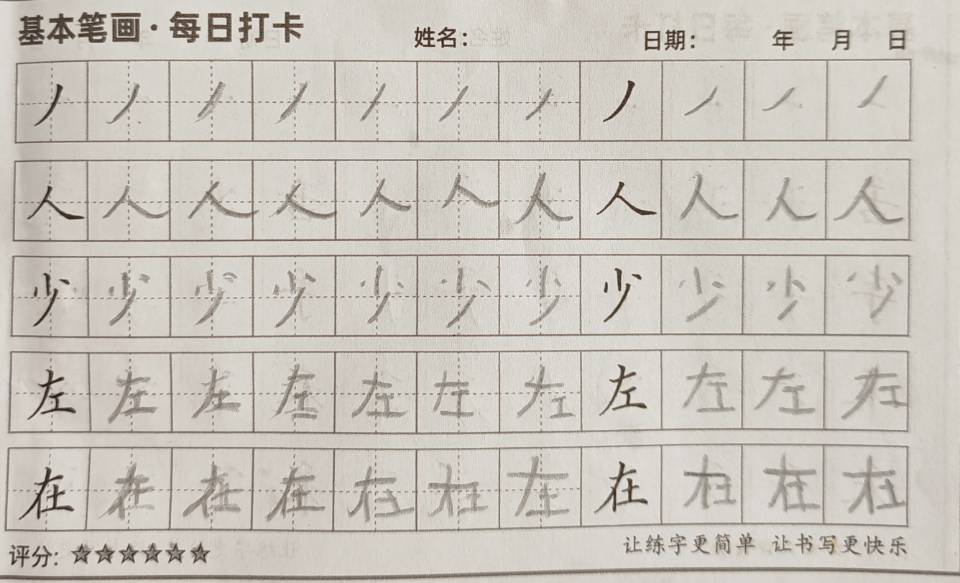 基本笔画·每日打卡 姓名： 日期： 年 月 日
丿 丿 丿 丿 丿 丿 丿 丿 丿 丿 丿
人 人 人 人 人 人 人 人 人 人 人
少 少 少 少 少 少 少 少 少 少 少
左 左 左 左 左 左 左 左 左 左 左
在 在 在 在 在 在 在 在 在 在 在
评分: ☆☆☆☆☆☆ 让练字更简单 让书写更快乐